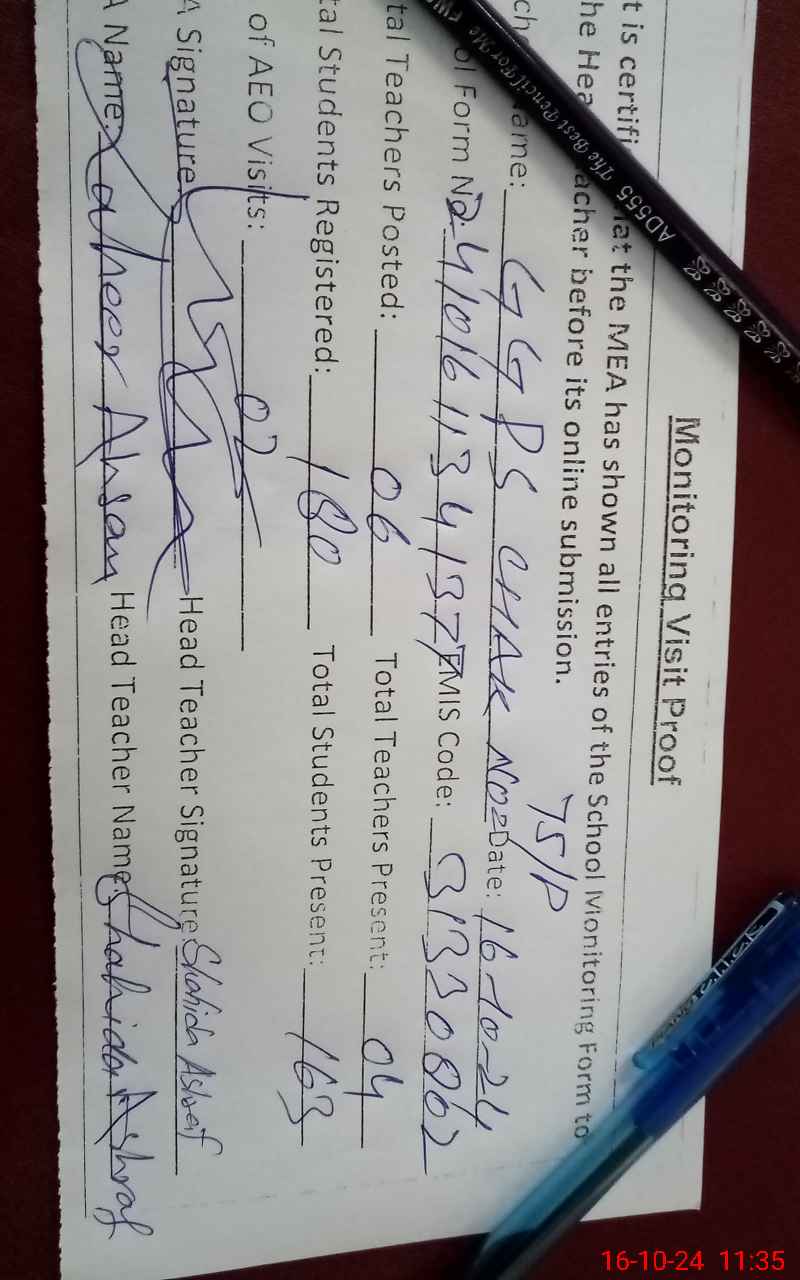 Monitoring Visit Proof
t is certifi hat the MEA has shown all entries of the School Monitoring Form to
he Hea acher before its online submission.
75/P
ame: GGPS CHAK NO= Date: 16-10-24
ol Form No. 4101611341377 EMIS Code: 31330862
tal Teachers Posted: 06 Total Teachers Present: 04
tal Students Registered: 180 Total Students Present: 163
of AEO Visits: 02
A Signature: Head Teacher Signature: Shahida Ashraf
A Name: Zahoor Ahsan Head Teacher Name: Shahida Ashraf
AD555 The Best Pencil For Me
16-10-24 11:35